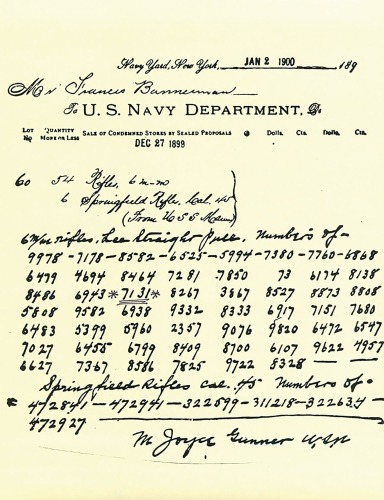 Navy Yard, New York, JAN 2 1900 189
Mr Francis Bannerman
To U. S. NAVY DEPARTMENT, Dr.
LOT No QUANTITY MORE OR LESS SALE OF CONDEMNED STORES BY SEALED PROPOSALS @ DOLLS. CTS. DOLLS. CTS.
DEC 27 1899
60 54 Rifles, 6 m-m
6 Springfield Rifle, Cal. 45
(From USS Maine)
6 m/m rifles, Lee Straight Pull, Numbers of-
9978-7178-8582-6525-5994-7380-7760-6868
6479 4694 8464 7281 7850 73 6174 8138
8486 6943 *7131* 8267 3867 8527 8873 8808
5808 9582 6938 9332 8333 6917 7151 7680
6483 5399 5960 2357 9076 9820 6472 6547
7027 6455 6799 8409 8700 6107 9622 4957
6627 7367 8586 7825 9722 8328 — —
Springfield Rifles cal. 45 Numbers of-
472841-472941-322599-311218-322634-
472927
M Joyce Gunner USN